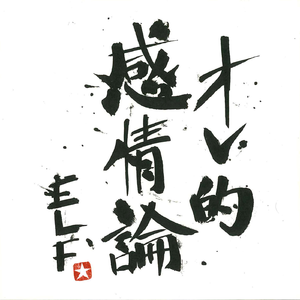 オレ的
感情論
ELF